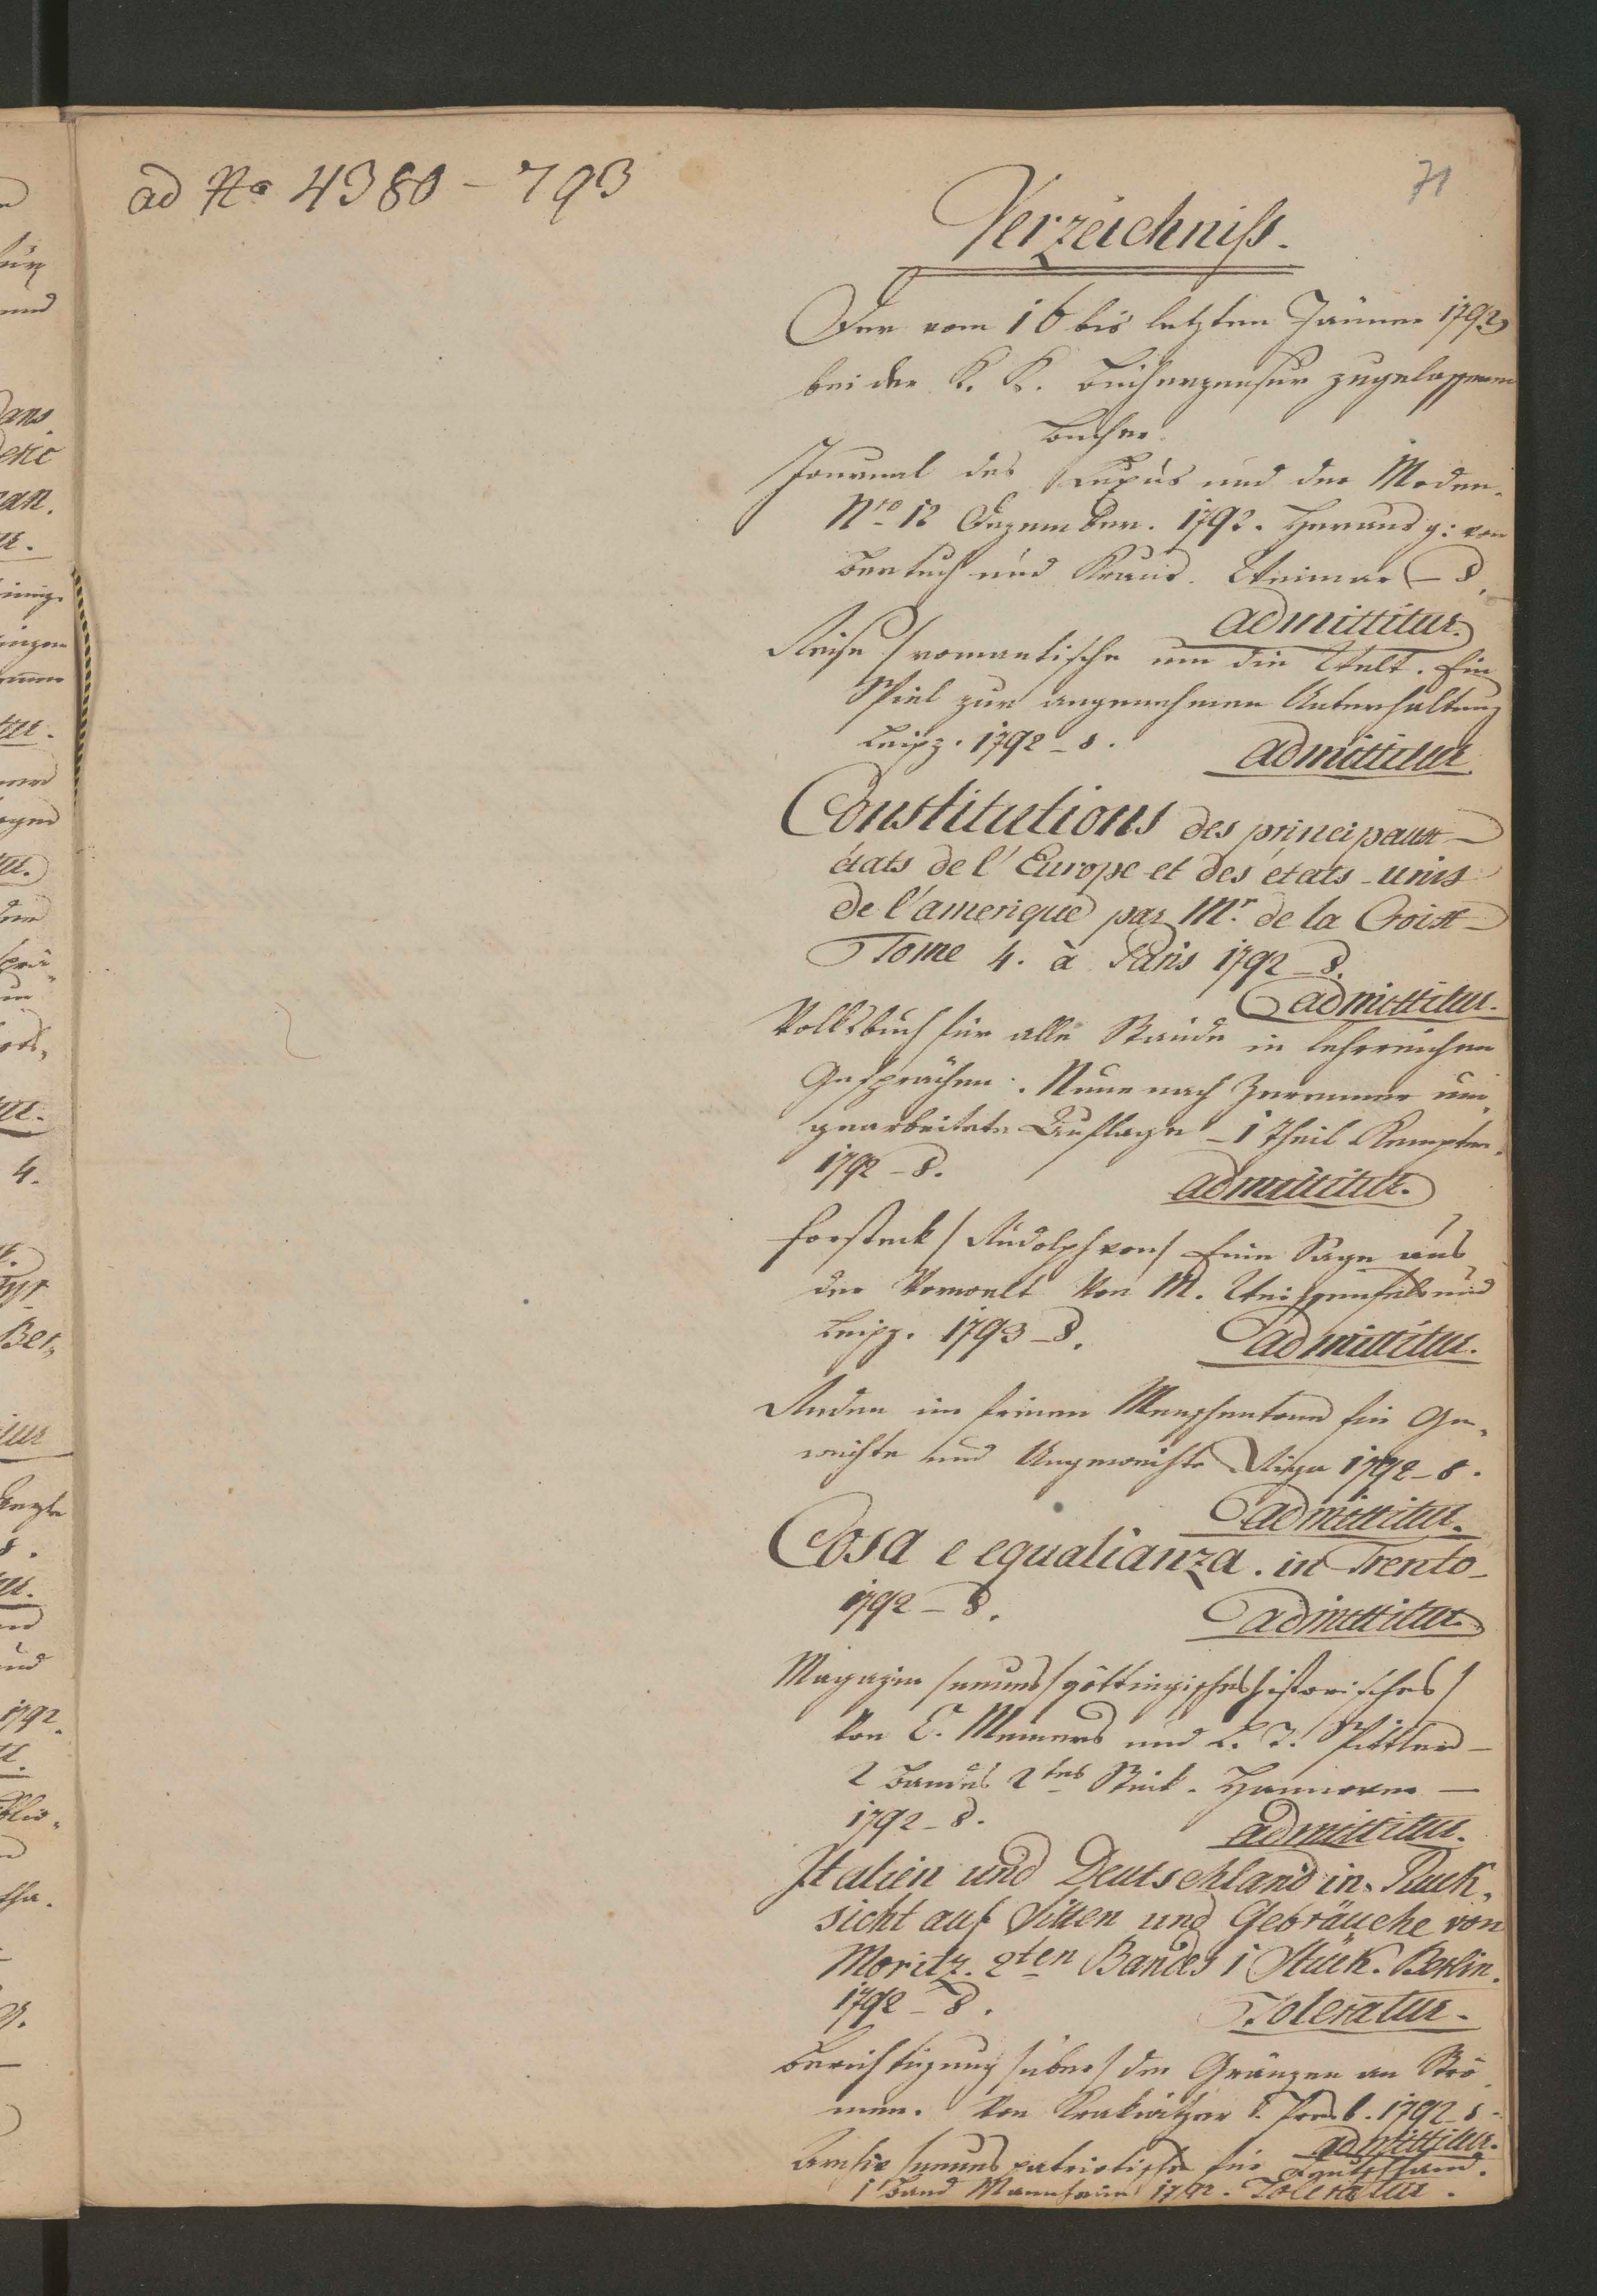 ad No 4380 - 793
71
Verzeichniss.
Der vom 16 bis letzten Jänner 1793
bei der K. K. Bücherzensur zugelassenen
Bücher.
Journal des Luxus und der Moden.
Nro 12 Dezember. 1792. Herausg: von
Bertuch und Kraus. Weimar - 8.
admittitur.
Reise / romantische um die Welt. Ein
Spiel zur angenehmen Unterhaltung
Leipz. 1792 - 8.
admittitur
Constitutions des principaux
états de l'Europe et des états-unis
de l'amerique par Mr. de la Croix
Tome 4. à Paris 1792 - 8.
admittitur.
Volksbuch für alle Stände in lehrreichen
Gesprächen. Neue nach Zerenner um,
gearbeitete Auflage - 1 Theil Kempten.
1792 - 8.
admittitur.
Forsteck / Rudolph von / Eine Sage aus
der Vorwelt Von M. Weissenfels und
Leipz. 1793 - 8.
admittitur.
Reden im feinen Menschentone für Ge,
weihte und Ungeweihte Riga 1792 - 8.
admittitur.
Cosa e equalianza. in Trento -
1792 - 8.
admittitur.
Magazin / neues / göttingisches historisches /
Von C. Meiners und L. T. Spittler -
2 Bandes 2tes Stück. Hannover -
1792 - 8.
admittitur.
Italien und Deutschland in Rück,
sicht auf Sitten und Gebräuche von
Moritz. 2ten Bandes 1 Stück. Berlin.
1792 - 8.
Toleratur.
Berichtigung / über / der Gränzen an Strö
men. Von 1792 - 8 -
admittitur.
Archiv / neues patriotische für Deutschland.
1 Band Mannheim 1792. Toleratur.